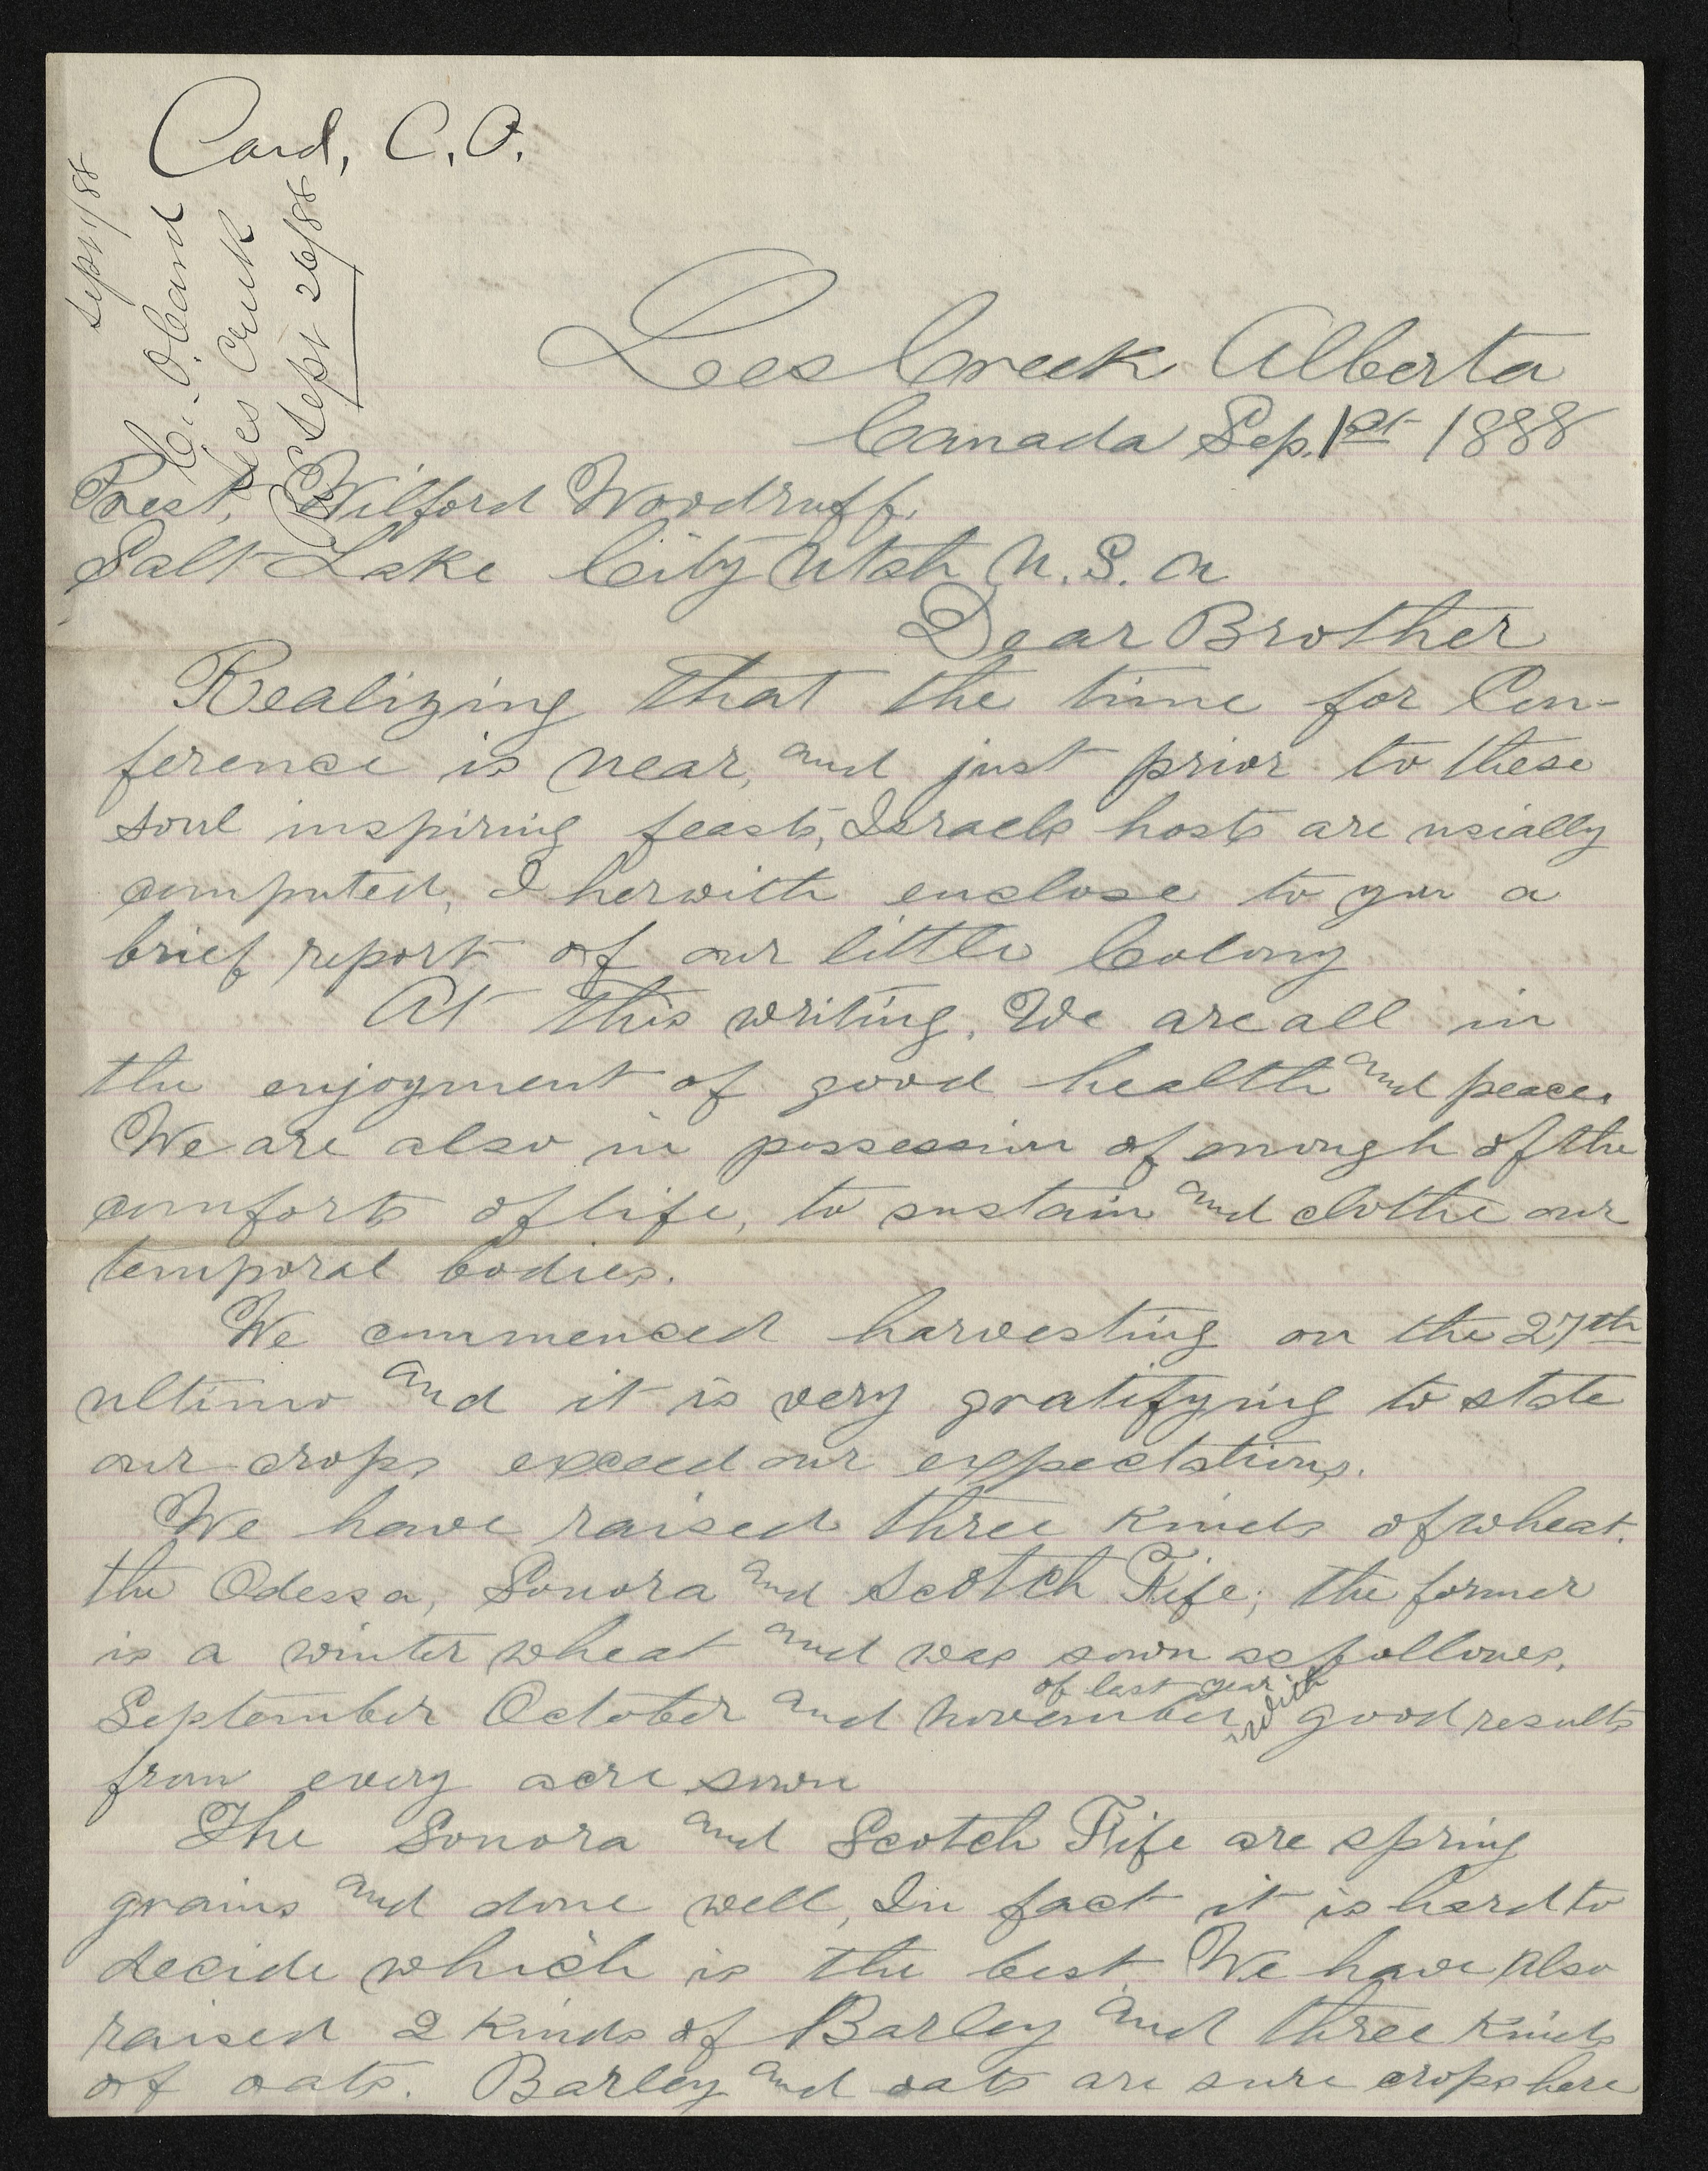 Card, C.O.
Sept 1/88
C. O. Card
Lees Creek
Sept 26/88
Lees Creek Alberta
Canada Sep. 1st 1888
Prest, Wilford Woodruff.
Salt Lake City Utah U.S.A
Dear Brother
Realizing that the time for Con-
ference is near, and just prior to these
soul inspiring feasts, Israels hosts are usially
computed, I herwith enclose to you a
brief report of our little Colony
At this writing, We are all in
the enjoyment of good health and peace.
We are also in possession of enough of the
comforts of life, to sustain and clothe our
temporal bodies.
We commenced harvesting on the 27th
ultimo and it is very gratifying to state
our crops exceed our expectations.
We have raised three kinds of wheat.
the Odessa, Sonora and Scotch Fife; the former
is a winter wheat and was sown as follows,
of last year with
September October and November, good results
from every acre sown
The Sonora and Scotch Fife are spring
grains and done well, In fact it is hard to
decide which is the best. We have also
raised 2 kinds of Barley and three kinds
of oats. Barley and oats are sure crops here